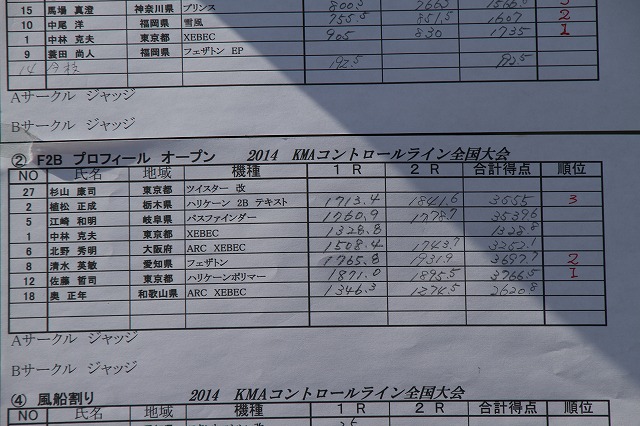 15 馬場 真澄 神奈川県 プリンス 800.5 766.5 1566.0 3
10 中尾 洋 福岡県 雪風 755.5 851.5 1607 2
1 中林 克夫 東京都 XEBEC 905 830 1735 1
9 蓑田 尚人 福岡県 フェザトン EP
14 今枝 192.5 192.5
Aサークル ジャッジ
Bサークル ジャッジ
② F2B プロフィール オープン 2014 KMAコントロールライン全国大会
NO 氏名 地域 機種 1 R 2 R 合計得点 順位
27 杉山 康司 東京都 ツイスター 改
2 植松 正成 栃木県 ハリケーン 2B テキスト 1713.4 1841.6 3555 3
5 江崎 和明 岐阜県 パスファインダー 1760.9 1778.7 3539.6
1 中林 克夫 東京都 XEBEC 1328.8 1328.8
6 北野 秀明 大阪府 ARC XEBEC 1508.4 1743.7 3252.1
8 清水 英敏 愛知県 フェザトン 1765.8 1931.9 3697.7 2
12 佐藤 哲司 東京都 ハリケーンポリマー 1871.0 1895.5 3766.5 1
18 奥 正年 和歌山県 ARC XEBEC 1346.3 1274.5 2620.8
Aサークル ジャッジ
Bサークル ジャッジ
④ 風船割り 2014 KMAコントロールライン全国大会
NO 氏名 地域 機種 1 R 2 R 合計得点 順位